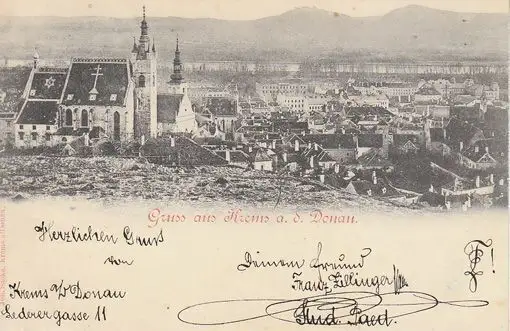 Gruss aus Krems a. d. Donau.
Herzlichen Gruß
von
Krems a/Donau
Lederergasse 11
Deinem Freund
Franz Zillinger
Stud. Paed.
!